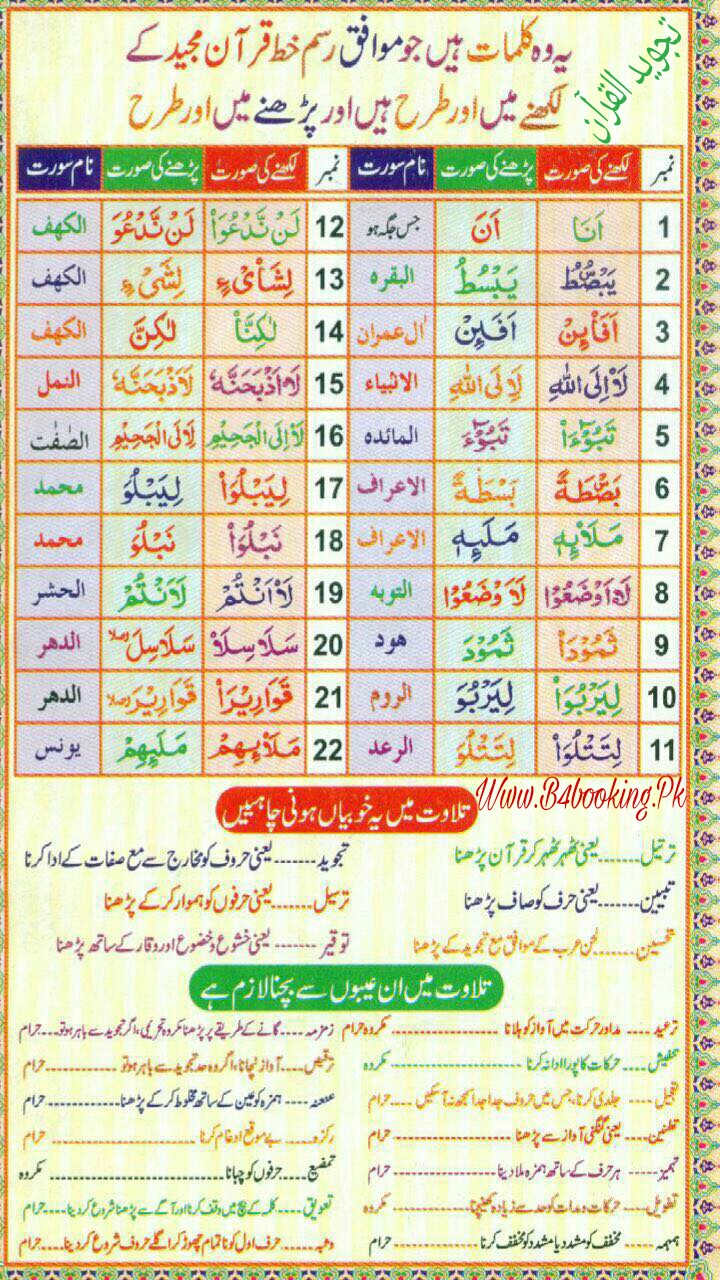 تجوید القرآن
یہ وہ کلمات ہیں جو موافق رسم خط قرآن مجید کے
لکھنے میں اور طرح ہیں اور پڑھنے میں اور طرح
نمبر لکھنے کی صورت پڑھنے کی صورت نام سورت نمبر لکھنے کی صورت پڑھنے کی صورت نام سورت
1 اَنَا اَنَ جس جگہ ہو 12 لَنْ نَّدْعُوَا۠ لَنْ نَّدْعُوَ الکھف
2 يَبْصُۜطُ يَبْسُطُ البقرہ 13 لِشَا۠ىْءٍ لِشَىْءٍ الکھف
3 اَفَا۠ئِنْ اَفَئِنْ اٰل عمران 14 لٰكِنَّا۠ لٰكِنَّ الکھف
4 لَا۠اِلَى اللهِ لَاِلَى اللهِ الانبیاء 15 لَا۠اَذْبَحَنَّهٗ لَاَذْبَحَنَّهٗ النمل
5 تَبُوْٓءَا۠ تَبُوْٓءَ المائدہ 16 لَا۠اِلَى الْجَحِيْمِ لَاِلَى الْجَحِيْمِ الصّٰفّٰت
6 بَصْۜطَةً بَسْطَةً الاعراف 17 لِيَبْلُوَا۠ لِيَبْلُوَ محمد
7 مَلَا۠ئِهٖ مَلَئِهٖ الاعراف 18 نَبْلُوَا۠ نَبْلُوَ محمد
8 لَا۠اَوْضَعُوْا لَاَوْضَعُوْا التوبہ 19 لَا۠اَنْتُمْ لَاَنْتُمْ الحشر
9 ثَمُوْدَا۠ ثَمُوْدَ ھود 20 سَلَاسِلَا۠ سَلَاسِلَ وصلا الدھر
10 لِيَرْبُوَا۠ لِيَرْبُوَ الروم 21 قَوَارِيْرَا۠ قَوَارِيْرَ وصلا الدھر
11 لِتَتْلُوَا۠ لِتَتْلُوَ الرعد 22 مَلَا۠ئِهِمْ مَلَئِهِمْ یونس
Www.B4booking.Pk
تلاوت میں یہ خوبیاں ہونی چاہئیں
ترتیل.......یعنی ٹھہر ٹھہر کر قرآن پڑھنا تجوید.......یعنی حروف کو مخارج سے مع صفات کے ادا کرنا
تبیین.......یعنی حرف کو صاف پڑھنا ترسیل.......یعنی حرفوں کو ہموار کر کے پڑھنا
تحسین.......لحن عرب کے موافق مع تجوید کے پڑھنا توقیر.......یعنی خشوع و خضوع اور وقار کے ساتھ پڑھنا
تلاوت میں ان عیبوں سے بچنا لازم ہے
ترعید.... مد اور حرکت میں آواز کو ہلانا....مکروہ حرام زمزمہ....گانے کے طریقے پر پڑھنا مکروہ تحریمی، اگر تجوید سے باہر ہو تو...حرام
تنفیش....حرکات کا پورا ادا نہ کرنا....مکروہ ترقیص....آواز نچانا، اگر وہ حد تجوید سے باہر ہو تو....حرام
تعجیل....جلدی کرنا، جس میں حروف جدا جدا سمجھ نہ آسکیں....حرام عنعنہ....ہمزہ کو عین کے ساتھ مخلوط کر کے پڑھنا....حرام
تطنین....یعنی گنگنی آواز سے پڑھنا....حرام رکزہ....بے موقع ادغام کرنا....حرام
تہمیز....ہر حرف کے ساتھ ہمزہ ملا دینا....حرام تمضیغ....حرفوں کو چبانا....مکروہ
تطویل....حرکات و مدات کو حد سے زیادہ کھینچنا....مکروہ تعویق....کلمہ کے بیچ میں وقف کرنا اور آگے سے پڑھنا شروع کر دینا....حرام
ہمہمہ....مخفف کو مشدد یا مشدد کو مخفف کرنا....حرام وثبہ....حرف اول کو ناتمام چھوڑ کر اگلے حروف شروع کر دینا....حرام